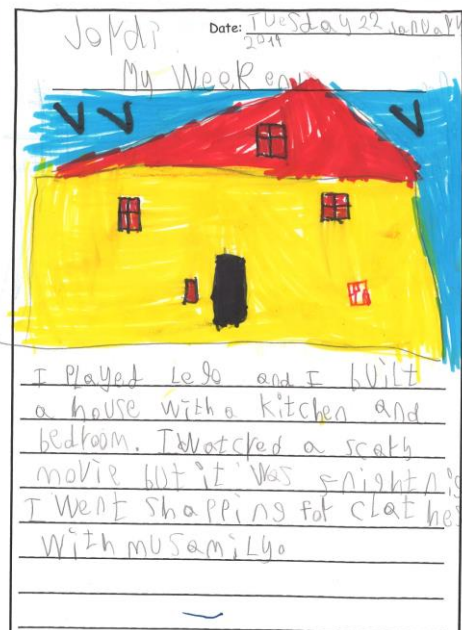 Jordi
Date: TUesday 22 january
2019
My WeeK en
I PlaYed Lego and I bUilt
a hoUse with a Kitchen and
bedroom. I Watched a scary
movie but it Was
I WenE shopping for clothes
With my family.